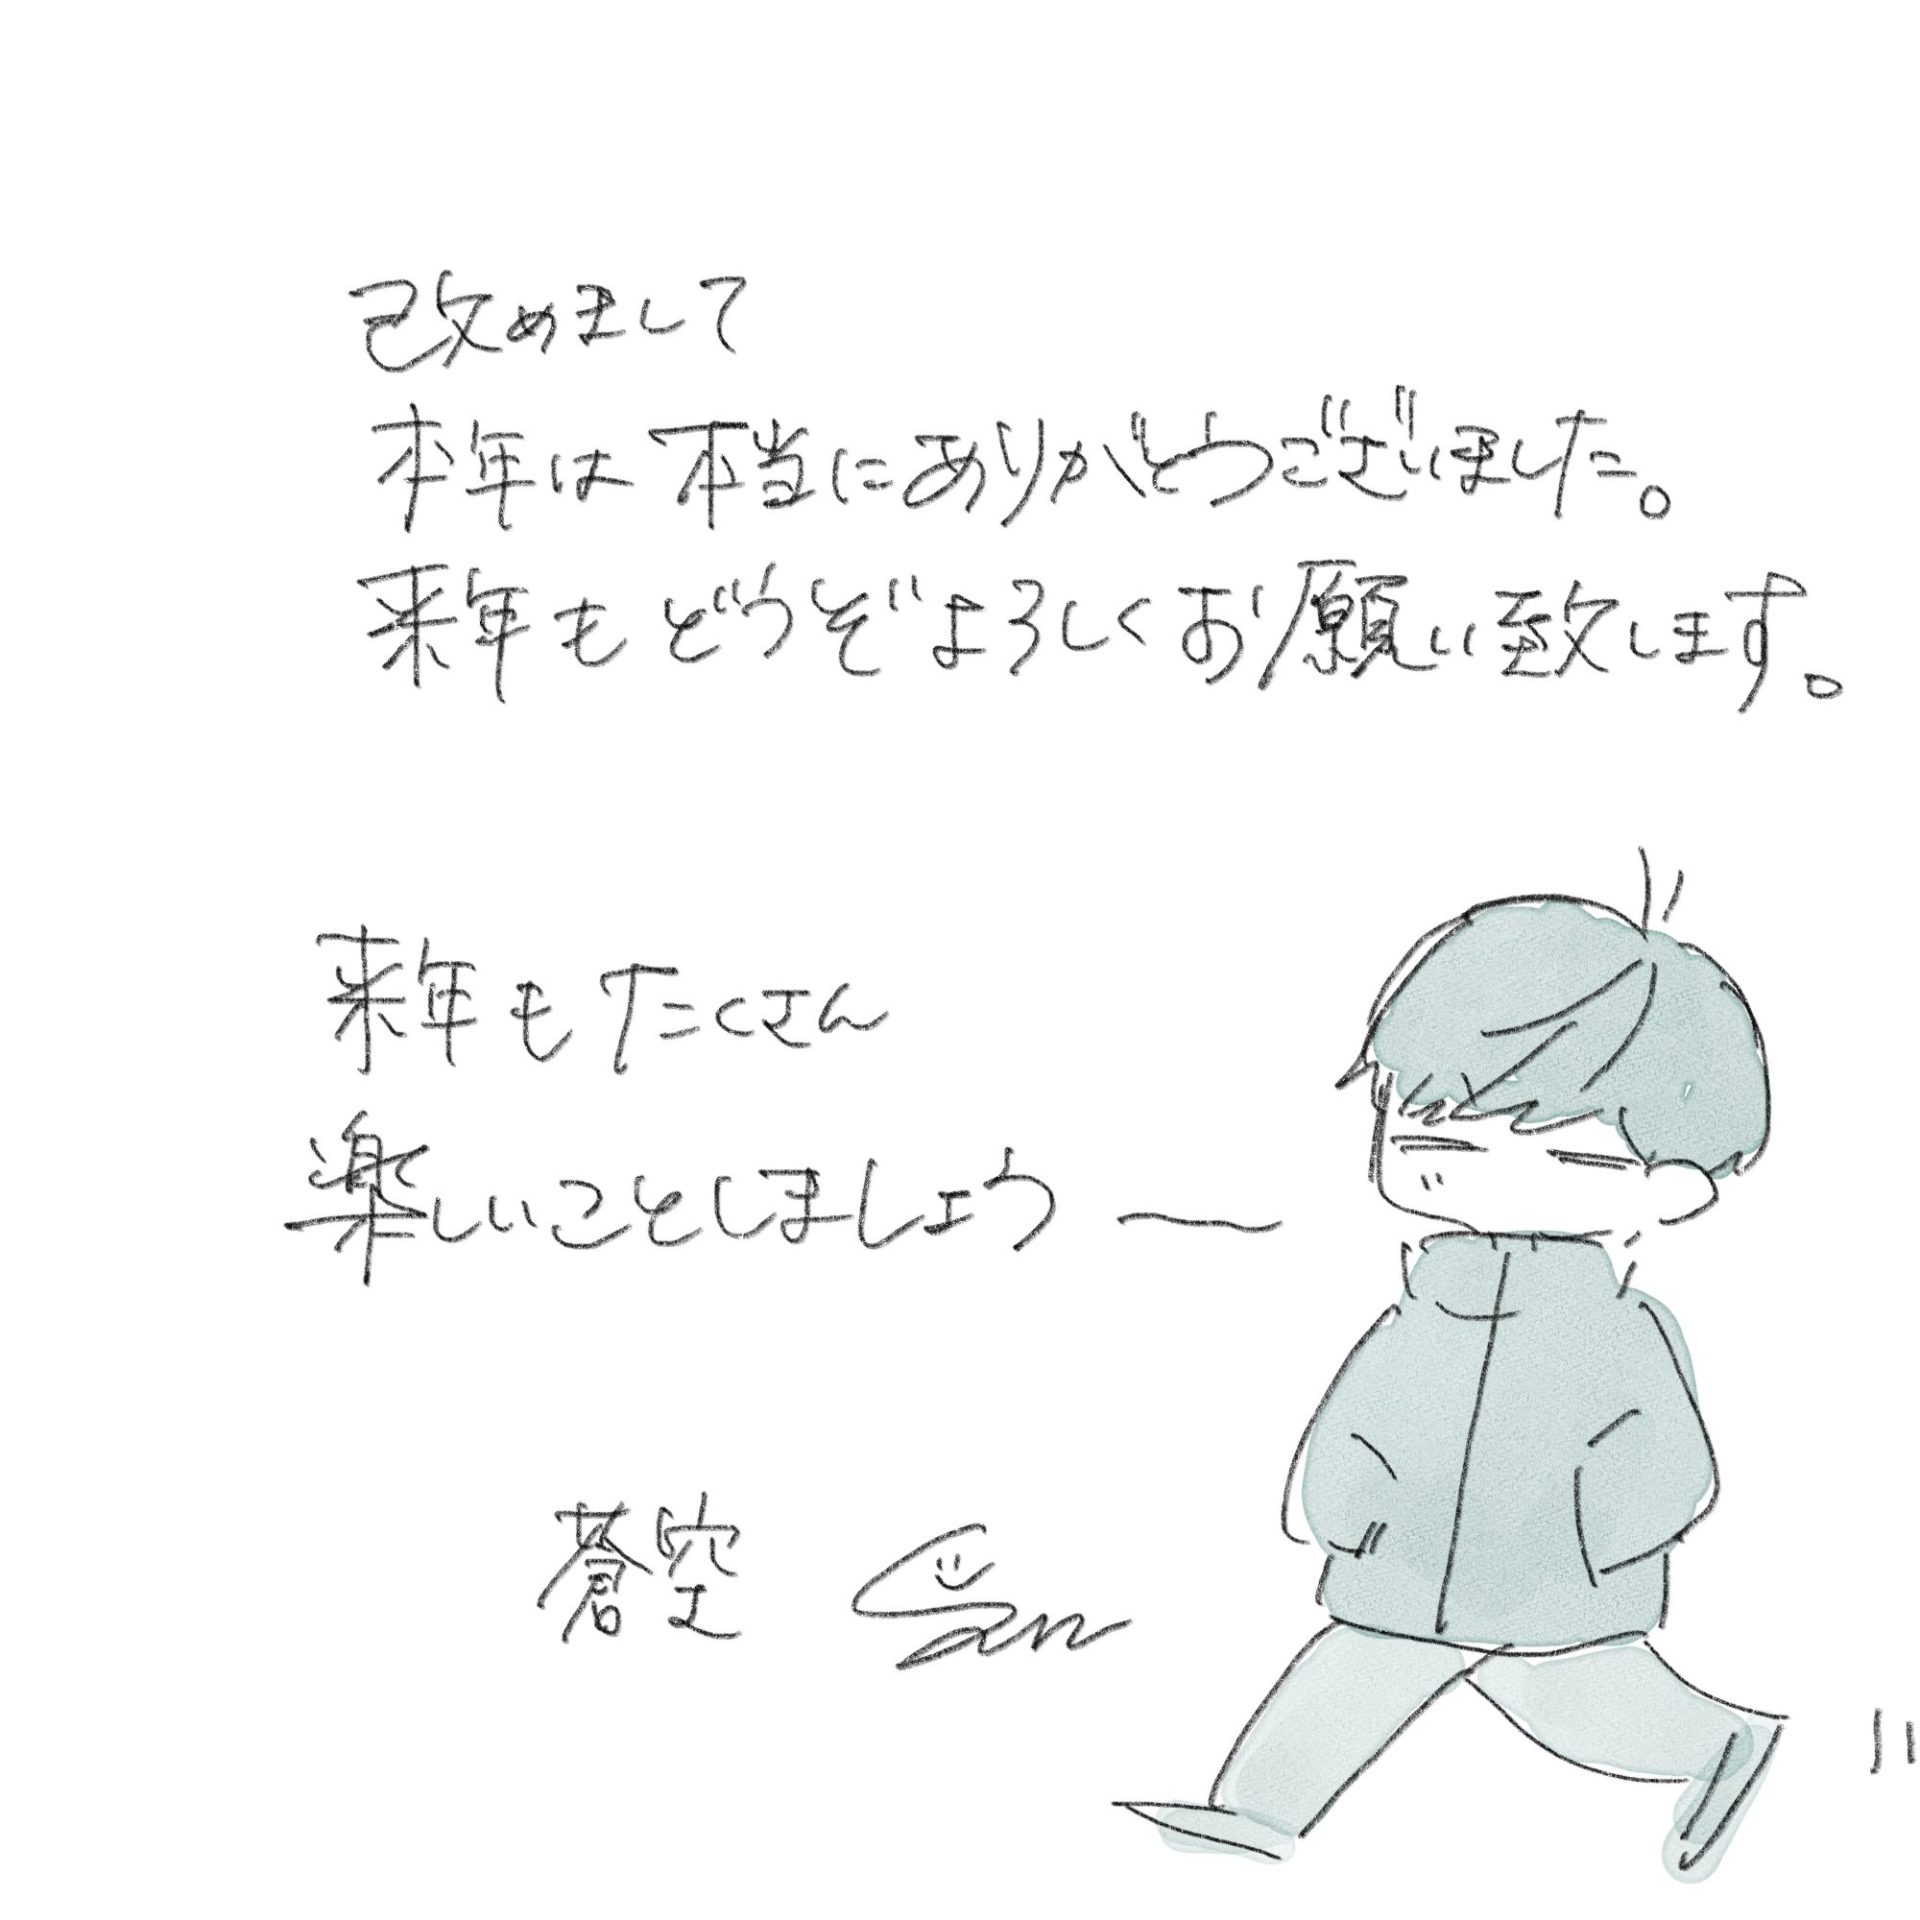 改めまして
本年は本当にありがとうございました。
来年もどうぞよろしくお願い致します。
来年もたくさん
楽しいことしましょう〜
蒼空